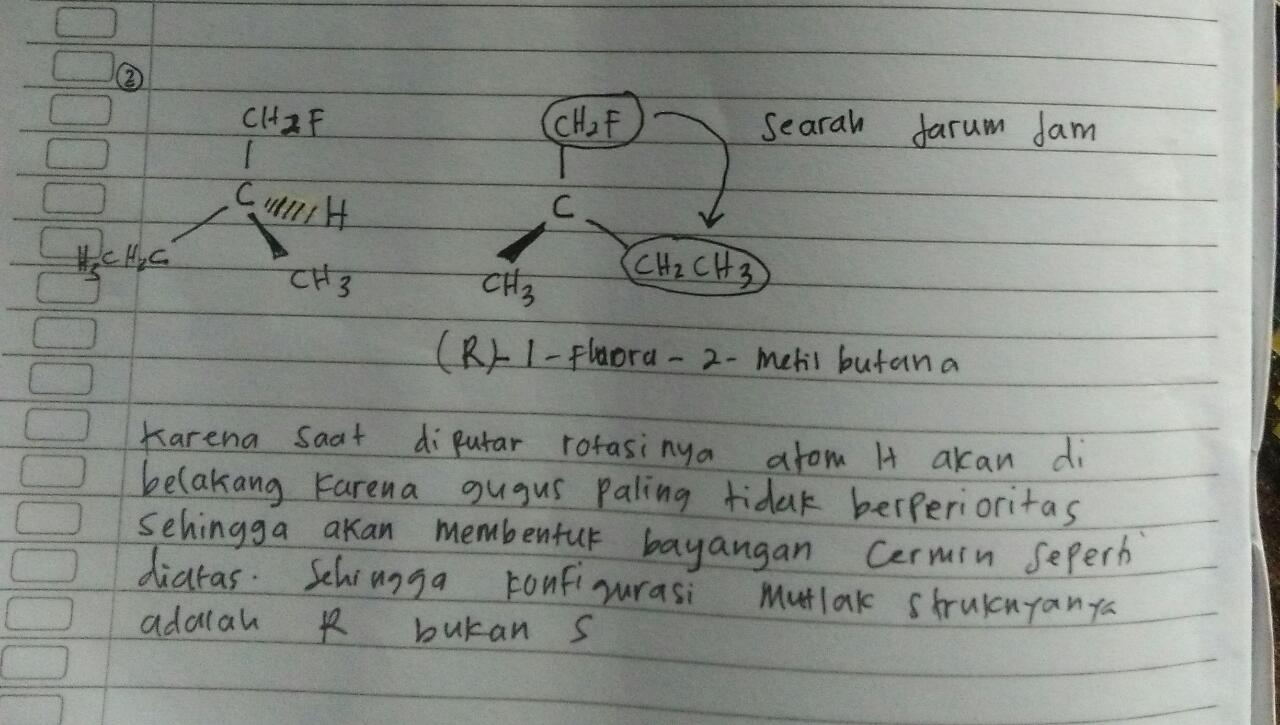 ②
CH2F
C H
H3CH2C
CH3
CH2F
C
CH3
CH2CH3
Searah Jarum Jam
(R)-1-Fluora-2-metil butana
Karena saat diputar rotasinya atom H akan di
belakang Karena gugus paling tidak berperioritas
Sehingga akan membentuk bayangan Cermin Seperti
diatas. Sehingga Konfigurasi Mutlak
adalah R bukan S